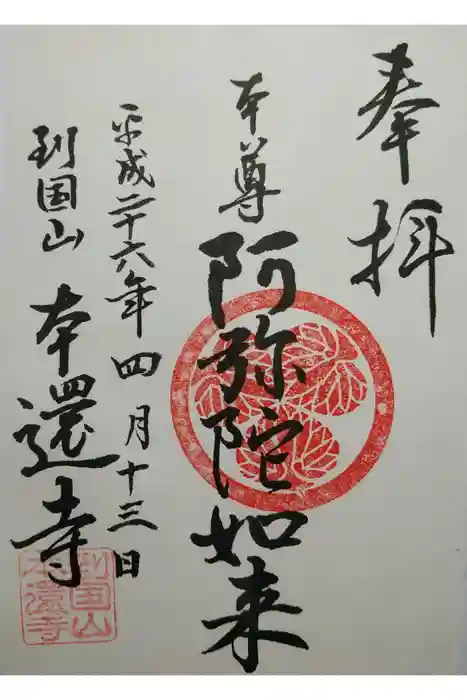 奉拝
本尊
阿弥陀如来
平成二十六年四月十三日
到国山
本還寺
到国山
本還寺